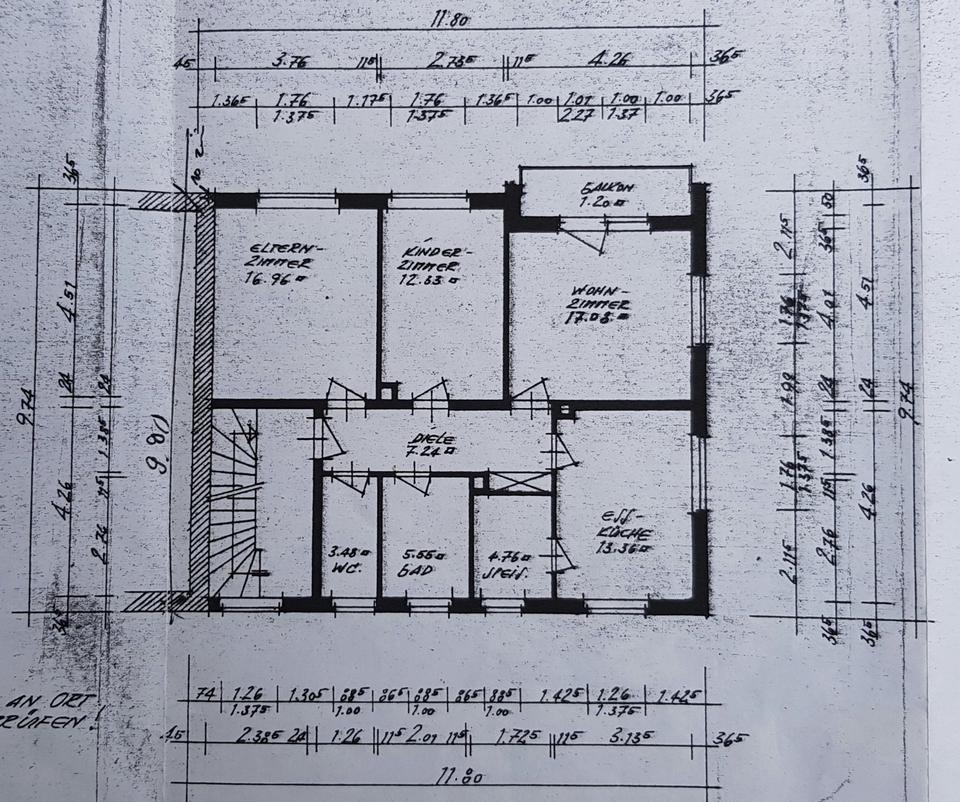 11.80
3.76 11⁵ 2.73⁵ 11⁵ 4.26 36⁵
1.36⁵ 1.76 1.17⁵ 1.76 1.36⁵ 1.00 1.01 1.00 1.00 36⁵
1.37⁵ 1.37⁵ 2.27 1.37
BALKON
1.20 ¤
ELTERN-
ZIMMER
16.96 ¤
KINDER-
ZIMMER
12.33 ¤
WOHN-
ZIMMER
17.08 ¤
DIELE
7.24 ¤
3.48 ¤
WC.
5.55 ¤
BAD
4.76 ¤
SPEIS.
ESS-
KÜCHE
13.36 ¤
36⁵
4.51
24
4.26
36⁵
9.74
24
1.38⁵
11⁵
2.76
9.80
2.11⁵
1.76
1.37⁵
1.99
1.76
1.37⁵
2.11⁵
50
36⁵
4.01
24
1.38⁵
11⁵
2.76
36⁵
36⁵
4.51
24
4.26
36⁵
9.74
AN ORT
PRÜFEN!
74 1.26 1.30⁵ 88⁵ 86⁵ 88⁵ 86⁵ 88⁵ 1.42⁵ 1.26 1.42⁵
1.37⁵ 1.00 1.00 1.00 1.37⁵
2.38⁵ 24 1.26 11⁵ 2.01 11⁵ 1.72⁵ 11⁵ 3.13⁵ 36⁵
11.80